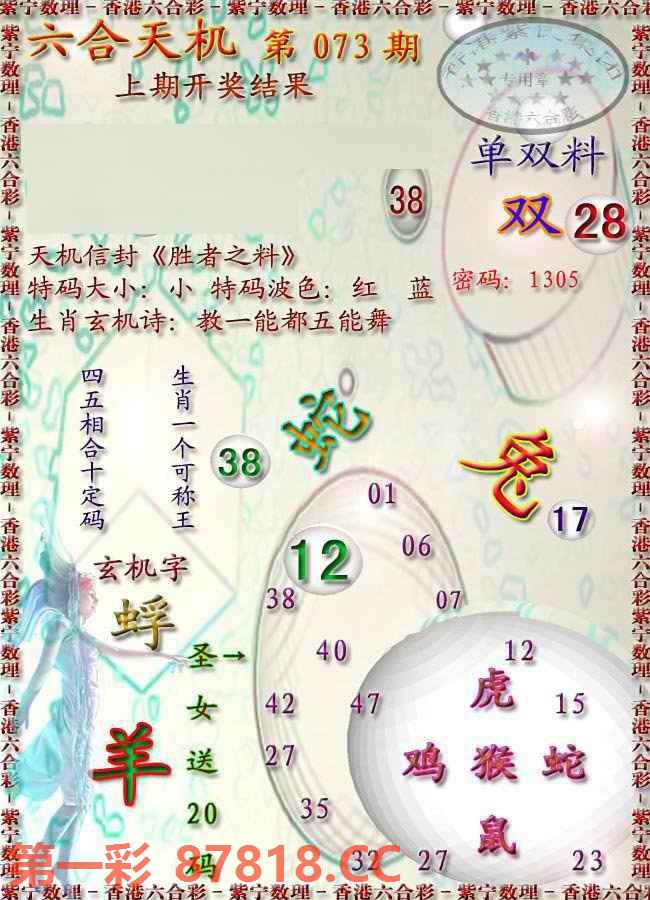 紫宁数理－香港六合彩－紫宁数理－香港六合彩－紫宁数理－香港六合彩
六合天机 第 073 期
上期开奖结果
专用章
香港六合彩
单双料
38
双 28
天机信封《胜者之料》
特码大小：小 特码波色：红 蓝
密码：1305
生肖玄机诗：教一能都五能舞
四五相合十定码
生肖一个可称王
蛇
38
兔
17
01
12
06
38
07
玄机字
蜉
圣→
女
送
20
码
羊
40
12
42
47
虎
15
27
鸡 猴 蛇
35
鼠
32
27
23
第一彩 87818.CC
紫宁数理－香港六合彩－紫宁数理－香港六合彩－紫宁数理－香港六合彩